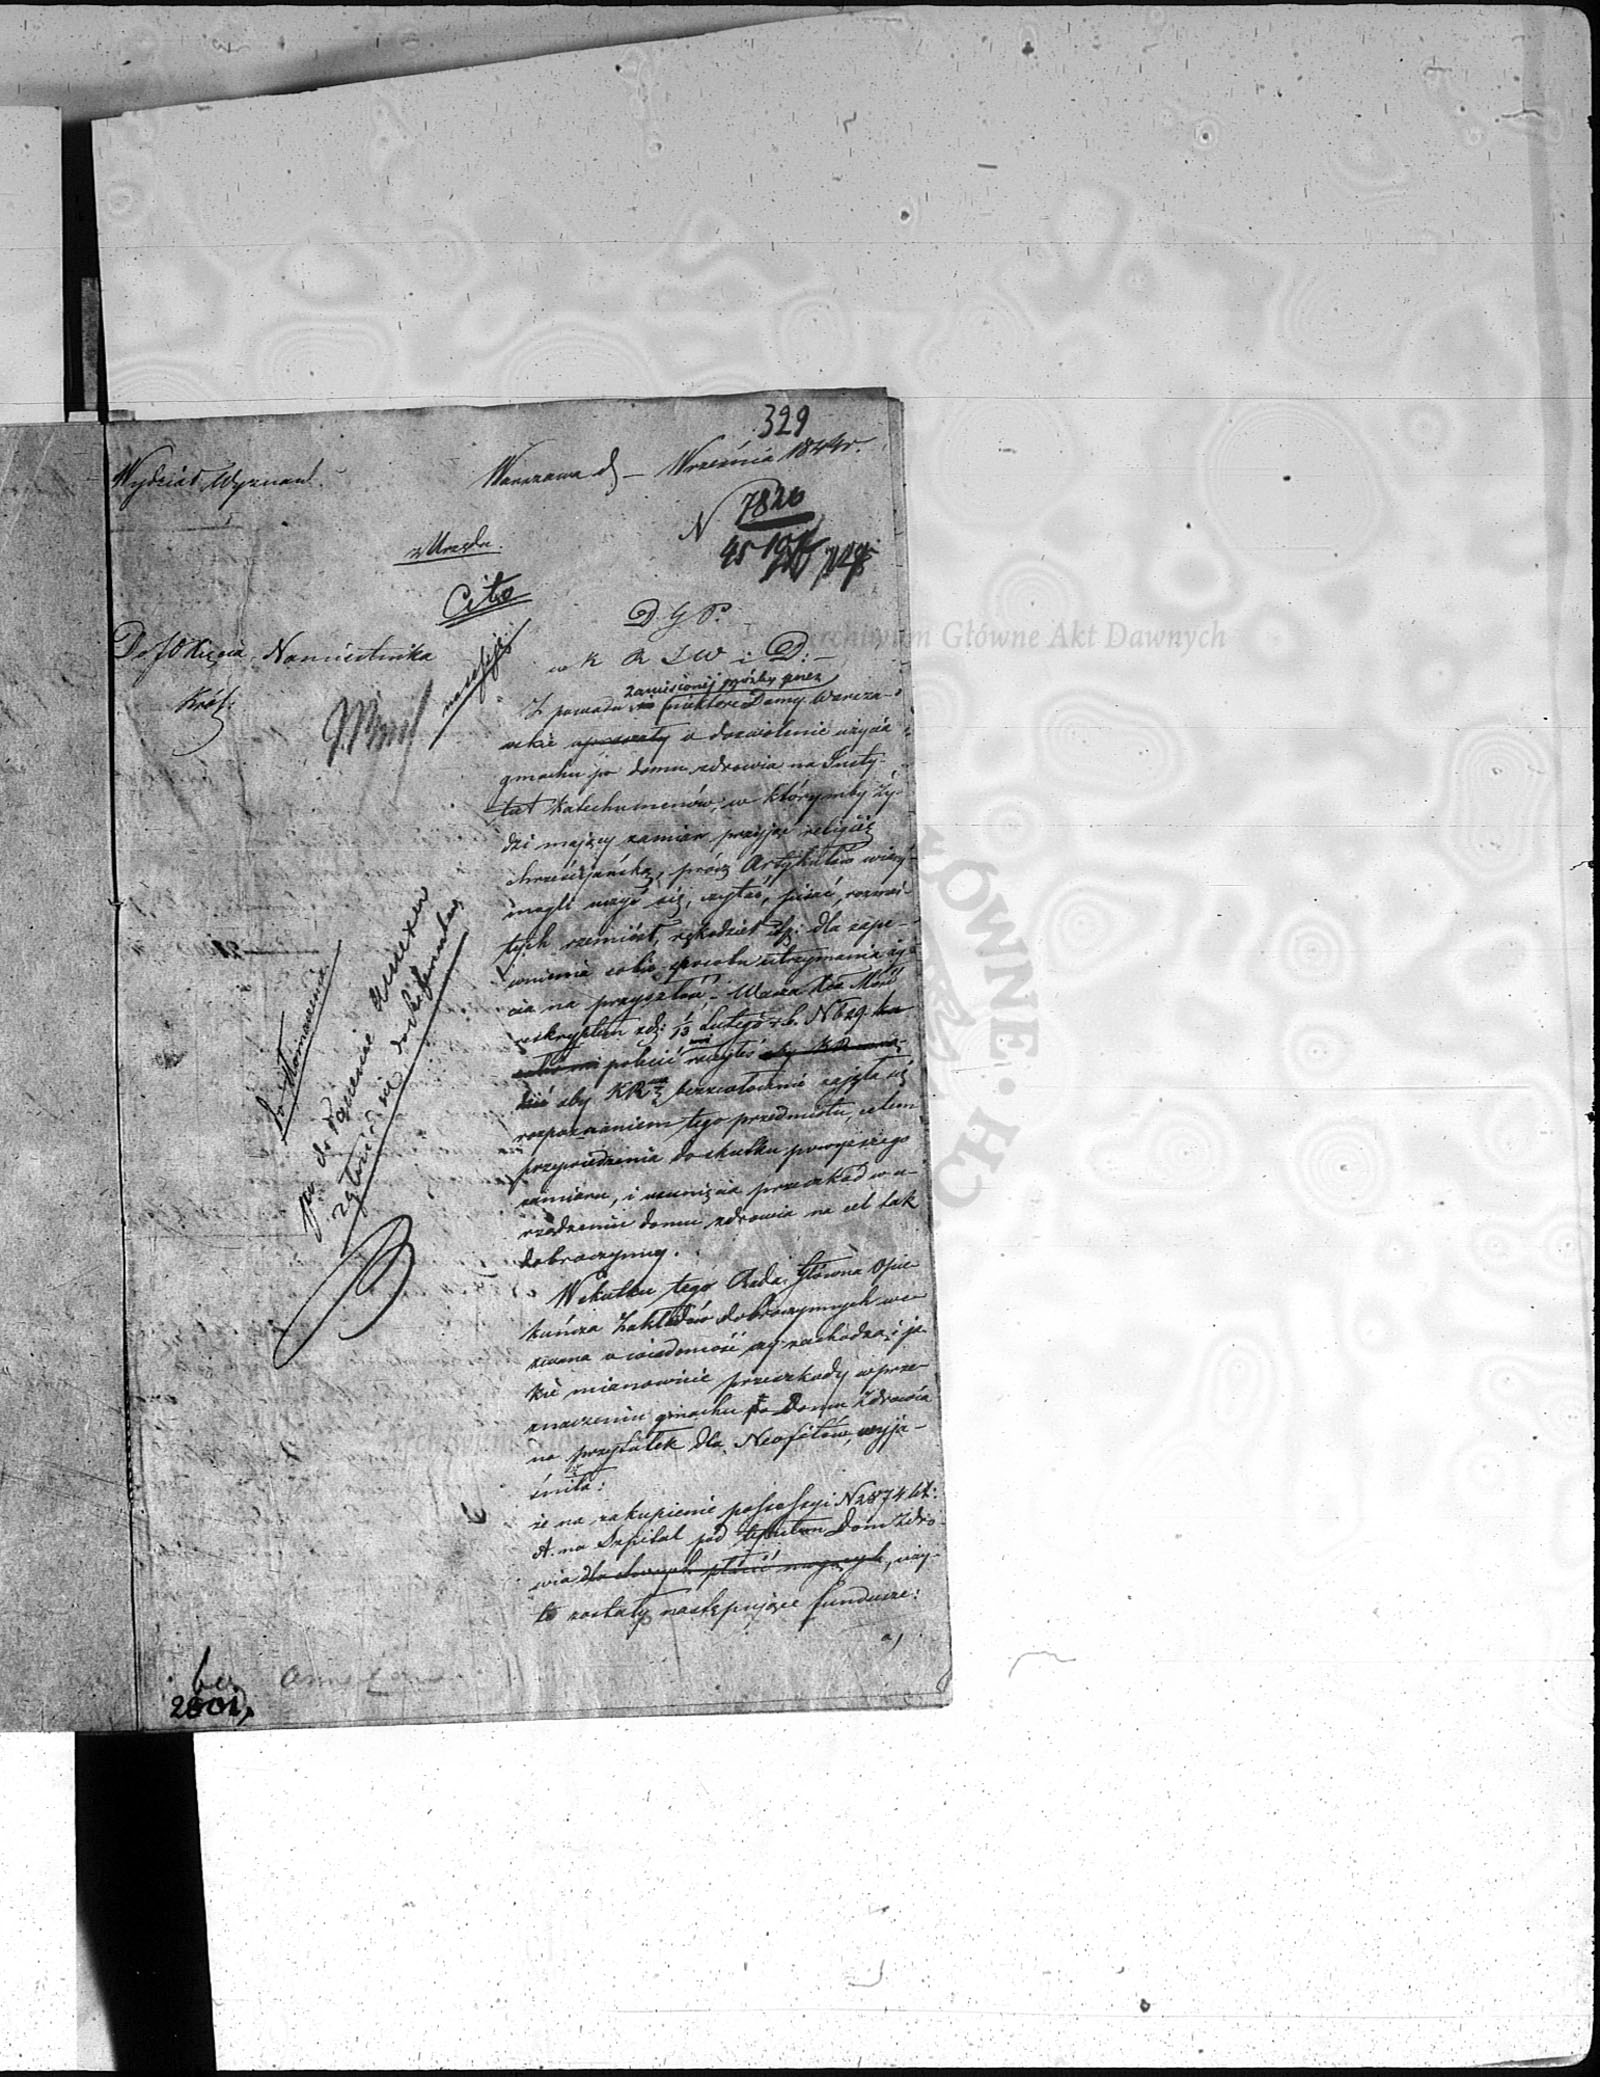 329
Wydział Wyznań.
Warszawa d — Września 1844 r.
N 7826
z Urzędu.
Cito
D. G. P.
Do JO Xięcia Namiestnika
Król:
w K R S W i D:
zaniesionej prośby przez
Z powodu niektóre Damy Warsza-
wskie upraszały o dozwolenie użycia
gmachu po domu zdrowia na Insty-
tut Katechumenów, w którymby Ży-
dzi mający zamiar przyjąć religię
chrześcijańską, prócz Artykułów wiary
mogli uczyć się, czytać, pisać, rozmai-
tych rzemiosł, rękodzieł itp: dla zape-
wnienia sobie sposobu utrzymania ży-
cia na przyszłość – Wasza Xca Mość
reskryptem zd: 1/13 Lutego r. b. N 629
polecić raczyłeś aby KR
aby KR bezzwłocznie zajęła się
rozpoznaniem tego przedmiotu, celem
przywiedzenia do skutku powyższego
zamiaru, i usunięcia przeszkód w u-
rządzeniu domu zdrowia na cel tak
dobroczynny.
Wskutku tego Rada Główna Opie-
kuńcza Zakładów dobroczynnych we-
zwana o wiadomość czy zachodzą i ja-
kie mianowicie przeszkody w prze-
znaczeniu gmachu po Domu Zdrowia
na przytułek dla Neofitów, wyja-
śniła:
że na zakupienie possessyi N 2874 lit:
A. na Szpital pod tytułem Dom Zdro-
wia dla chorych płacić mogących, uży-
te zostały następujące fundusze:
a)
do
zgłosić się
2801,
Archiwum Główne Akt Dawnych